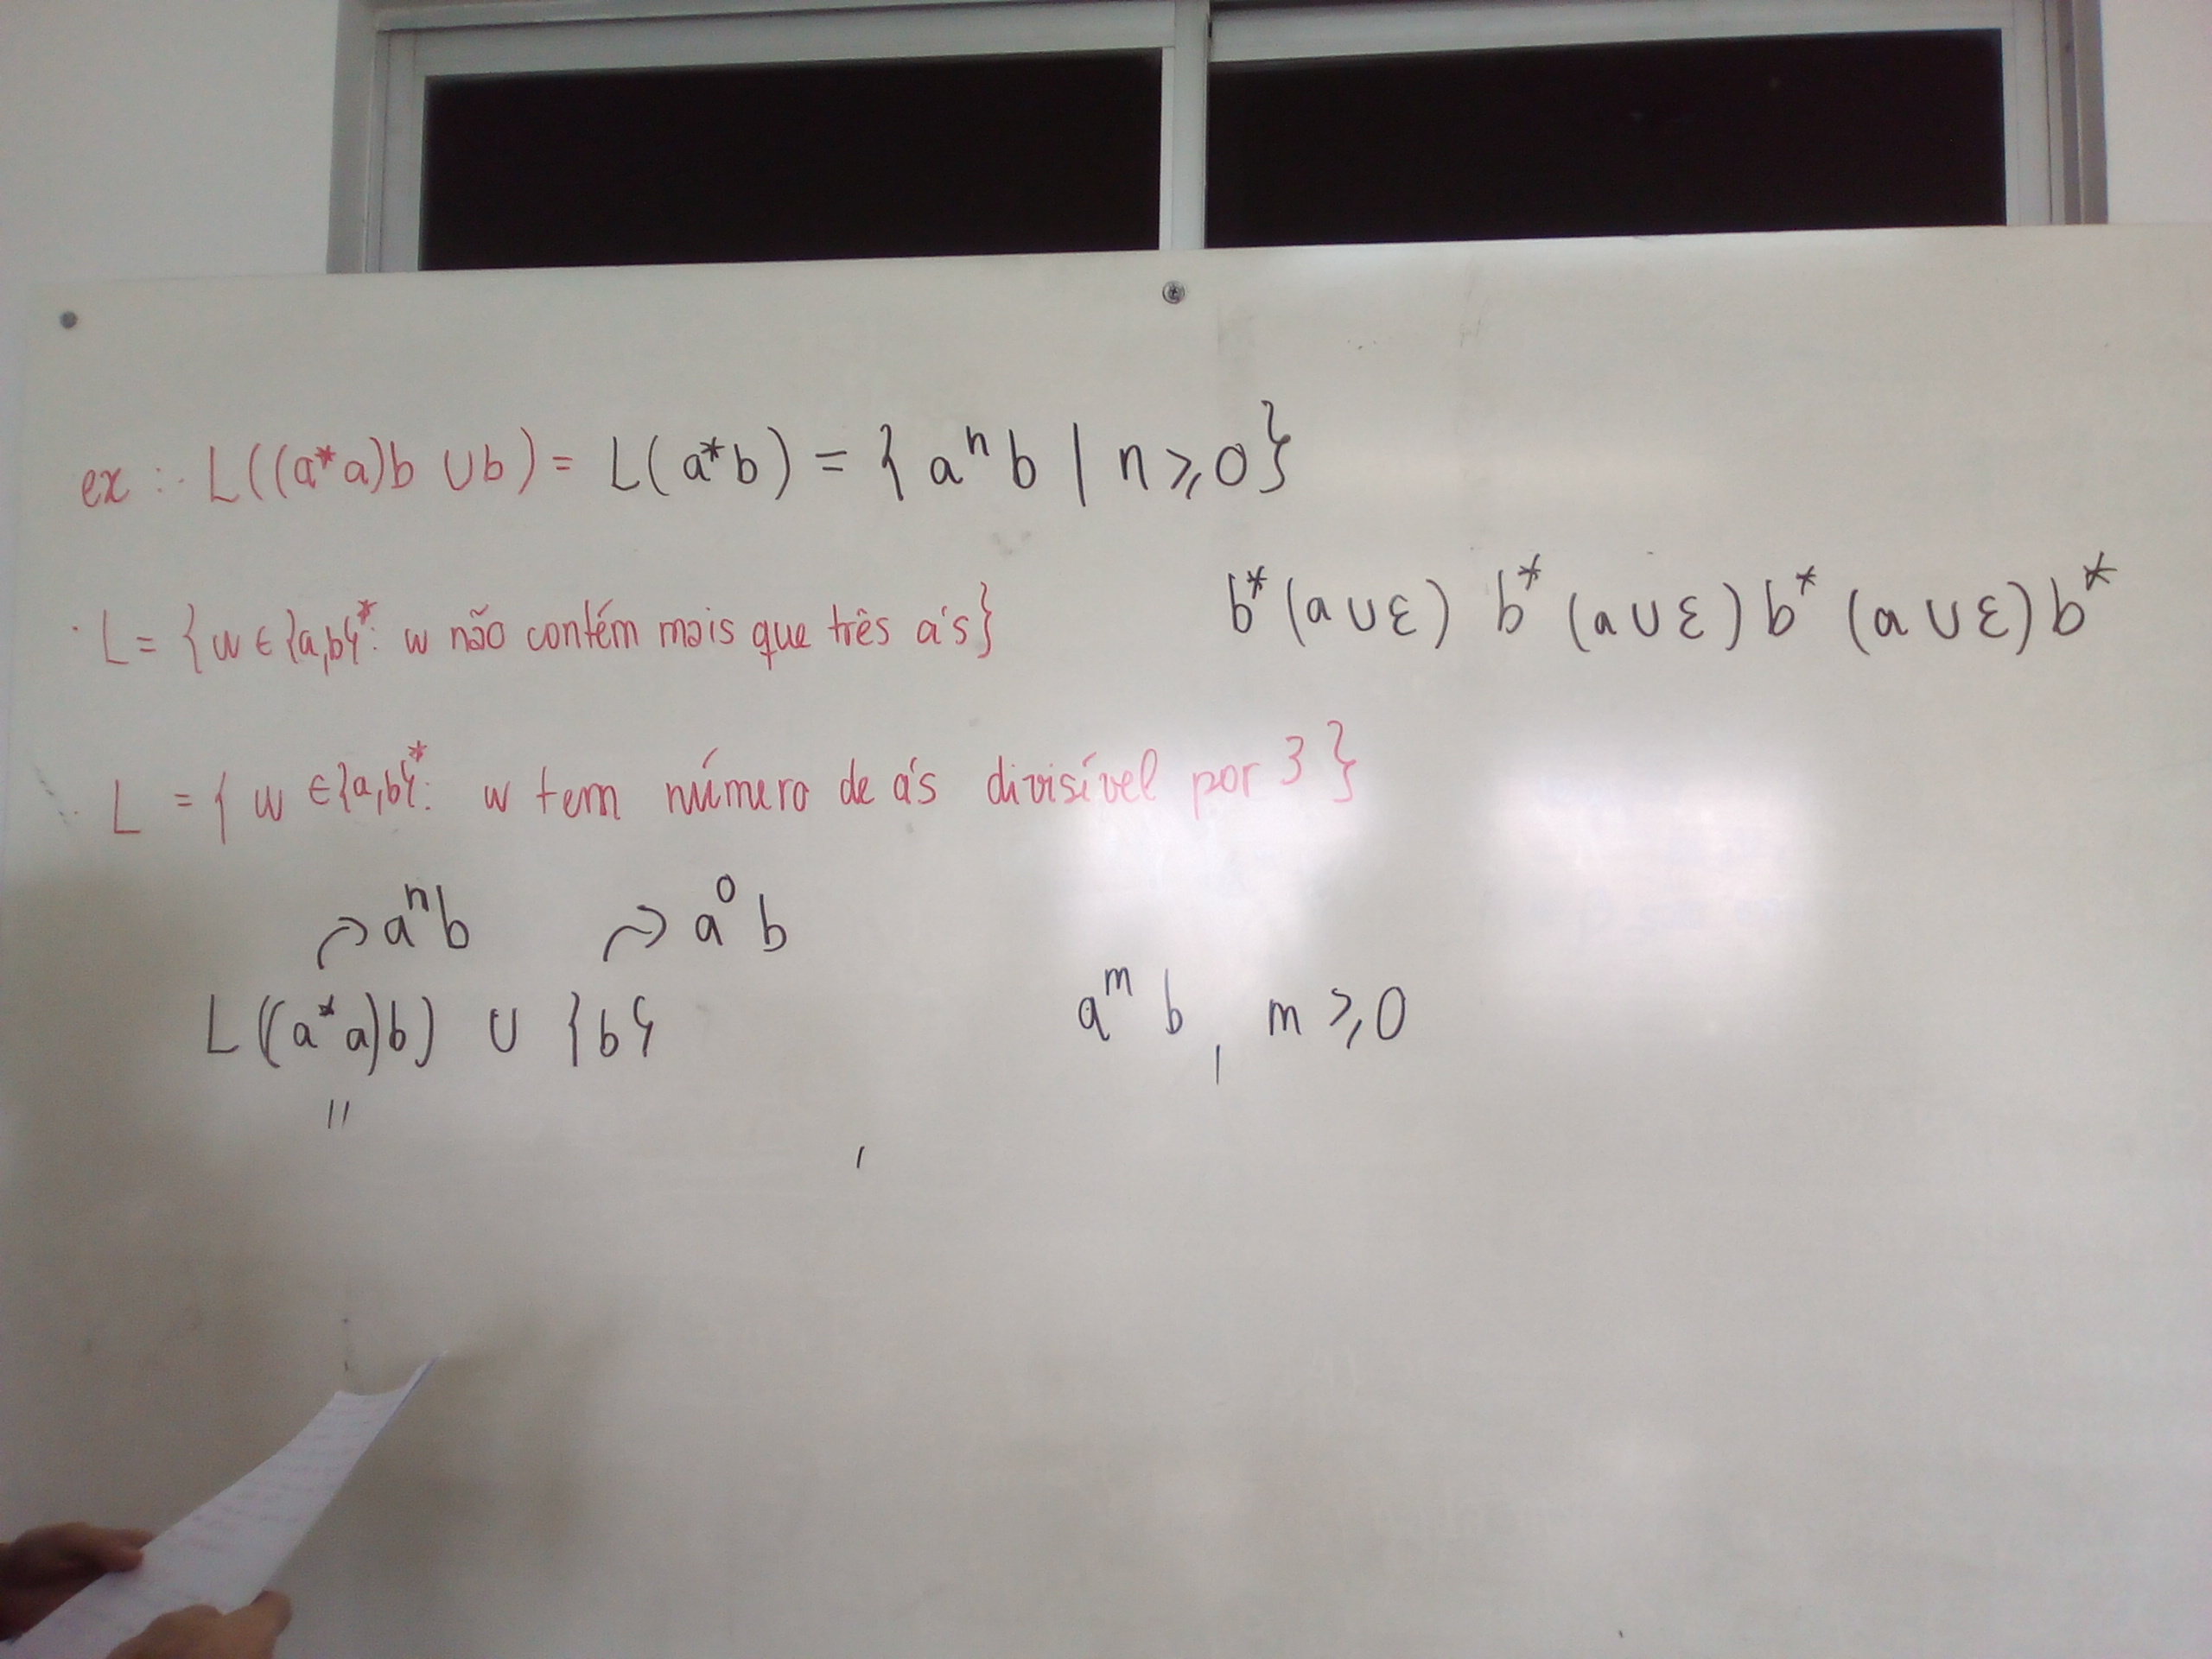 ex: · L((a*a)b ∪ b) = L(a*b) = {aⁿb | n ≥ 0}
· L = {w ∈ {a,b}*: w não contém mais que três a's} b*(a∪ε) b*(a∪ε) b*(a∪ε)b*
· L = {w ∈ {a,b}*: w tem número de a's divisível por 3}
↷ aⁿb ↷ a⁰b
L((a*a)b) ∪ {b} aᵐb, m ≥ 0